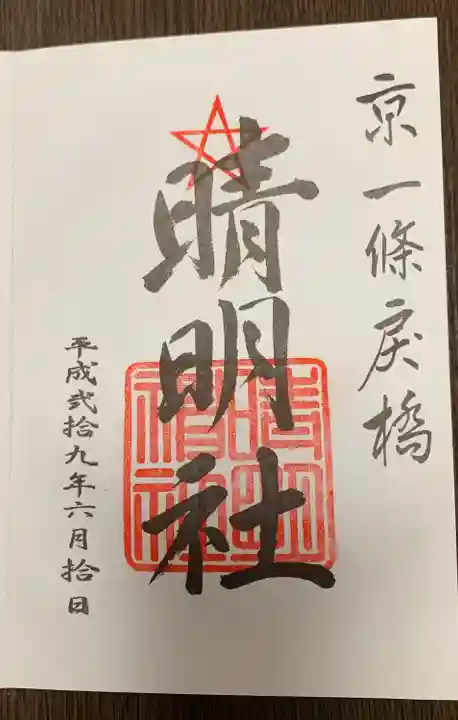 京一條戻橋
晴明社
平成弐拾九年六月拾日